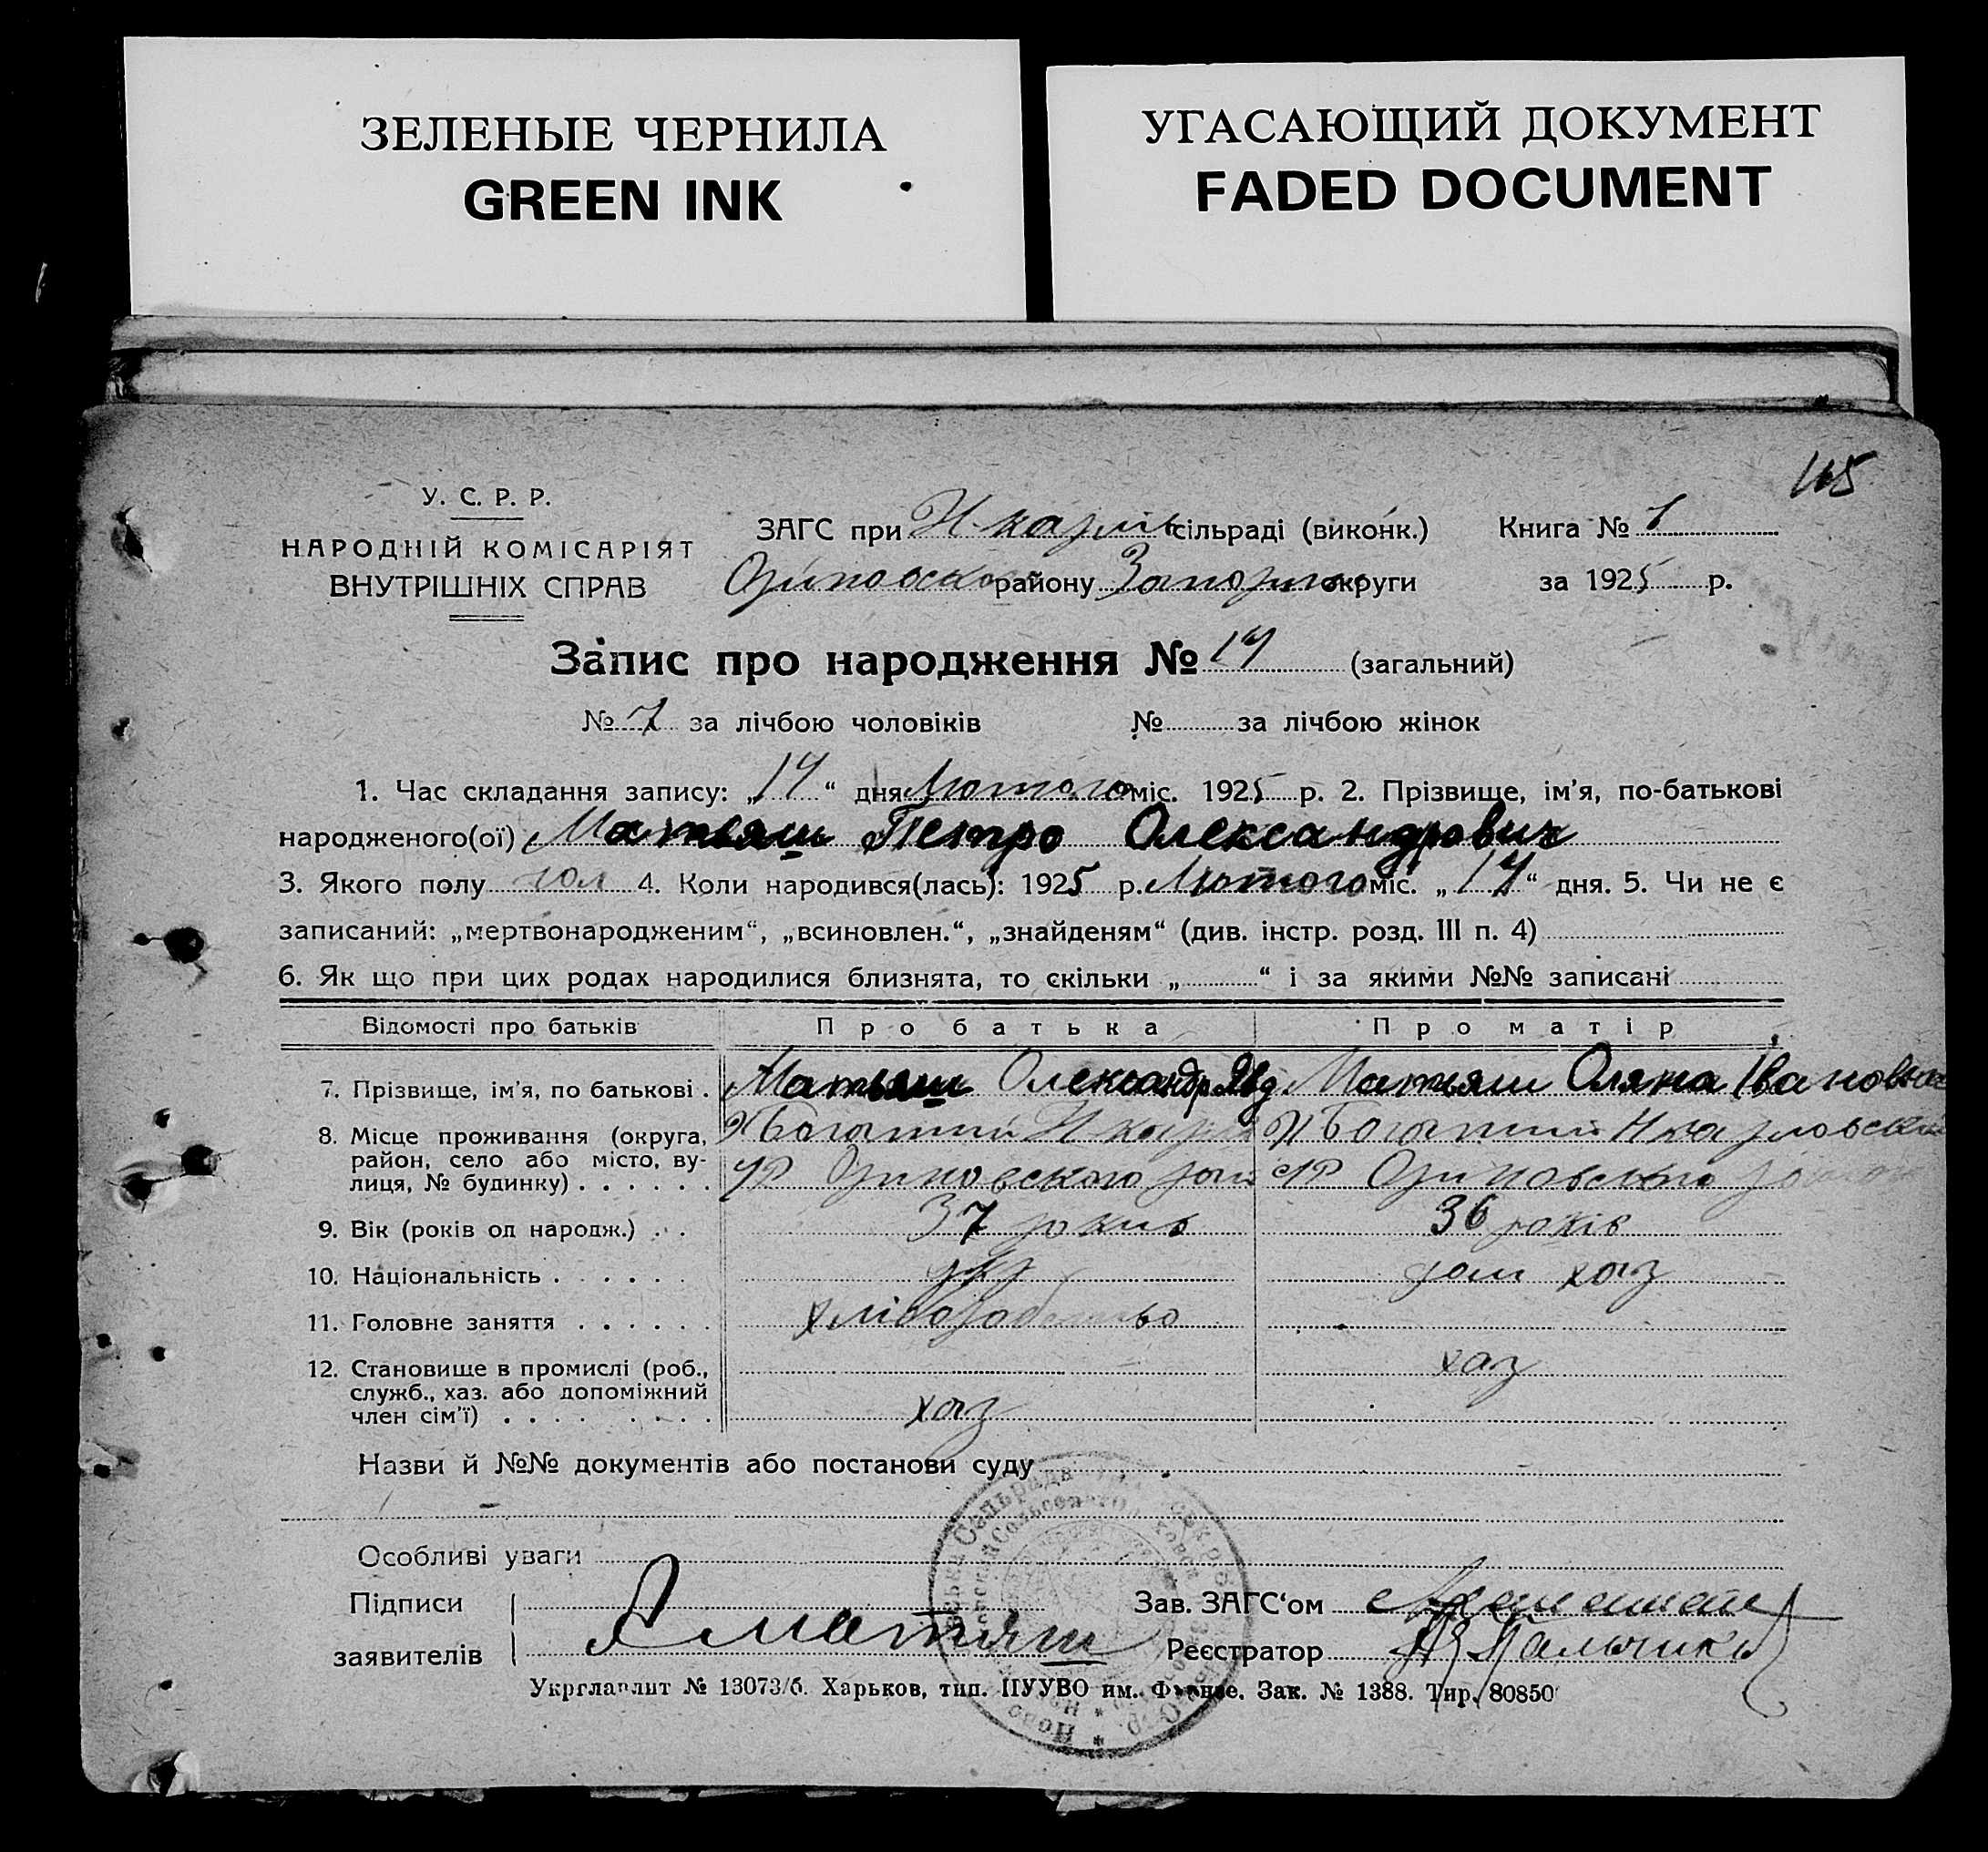 ЗЕЛЕНЫЕ ЧЕРНИЛА
GREEN INK
УГАСАЮЩИЙ ДОКУМЕНТ
FADED DOCUMENT
115
У. С. Р. Р.
НАРОДНІЙ КОМІСАРІЯТ
ВНУТРІШНІХ СПРАВ
ЗАГС при Н-карлів сільраді (виконк.)
району округи
Книга № 1
за 1925 р.
Запис про народження № 14 (загальний)
№ 7 за лічбою чоловіків № за лічбою жінок
1. Час складання запису: „14“ дня Лютого міс. 1925 р. 2. Прізвище, ім'я, по-батькові
народженого(ої) Матьяш Петро Олександрович
3. Якого полу чол 4. Коли народився(лась): 1925 р. Лютого міс. „14“ дня. 5. Чи не є
записаний: „мертвонародженим“, „всиновлен.“, „знайденям“ (див. інстр. розд. III п. 4)
6. Як що при цих родах народилися близнята, то скільки „ “ і за якими №№ записані
Відомості про батьків Про батька Про матір
7. Прізвище, ім'я, по батькові . Матьяш Олександр Матьяш Оляна Івановна
8. Місце проживання (округа,
район, село або місто, ву-
лиця, № будинку) . . . . . .
9. Вік (років од народж.) . . 37 рокив 36 років
10. Національність . . . . . . укр дом хаз
11. Головне заняття . . . . . . хліборобство
12. Становище в промислі (роб.,
служб., хаз. або допоміжний
член сім'ї) . . . . . . . . хаз хаз
Назви й №№ документів або постанови суду
Особливі уваги
Підписи
заявителів Матяш
Зав. ЗАГС‘ом
Реєстратор
Укрглавлит № 13073/б. Харьков, тип. ПУУВО им. Фрунзе. Зак. № 1388. Тир. 80850